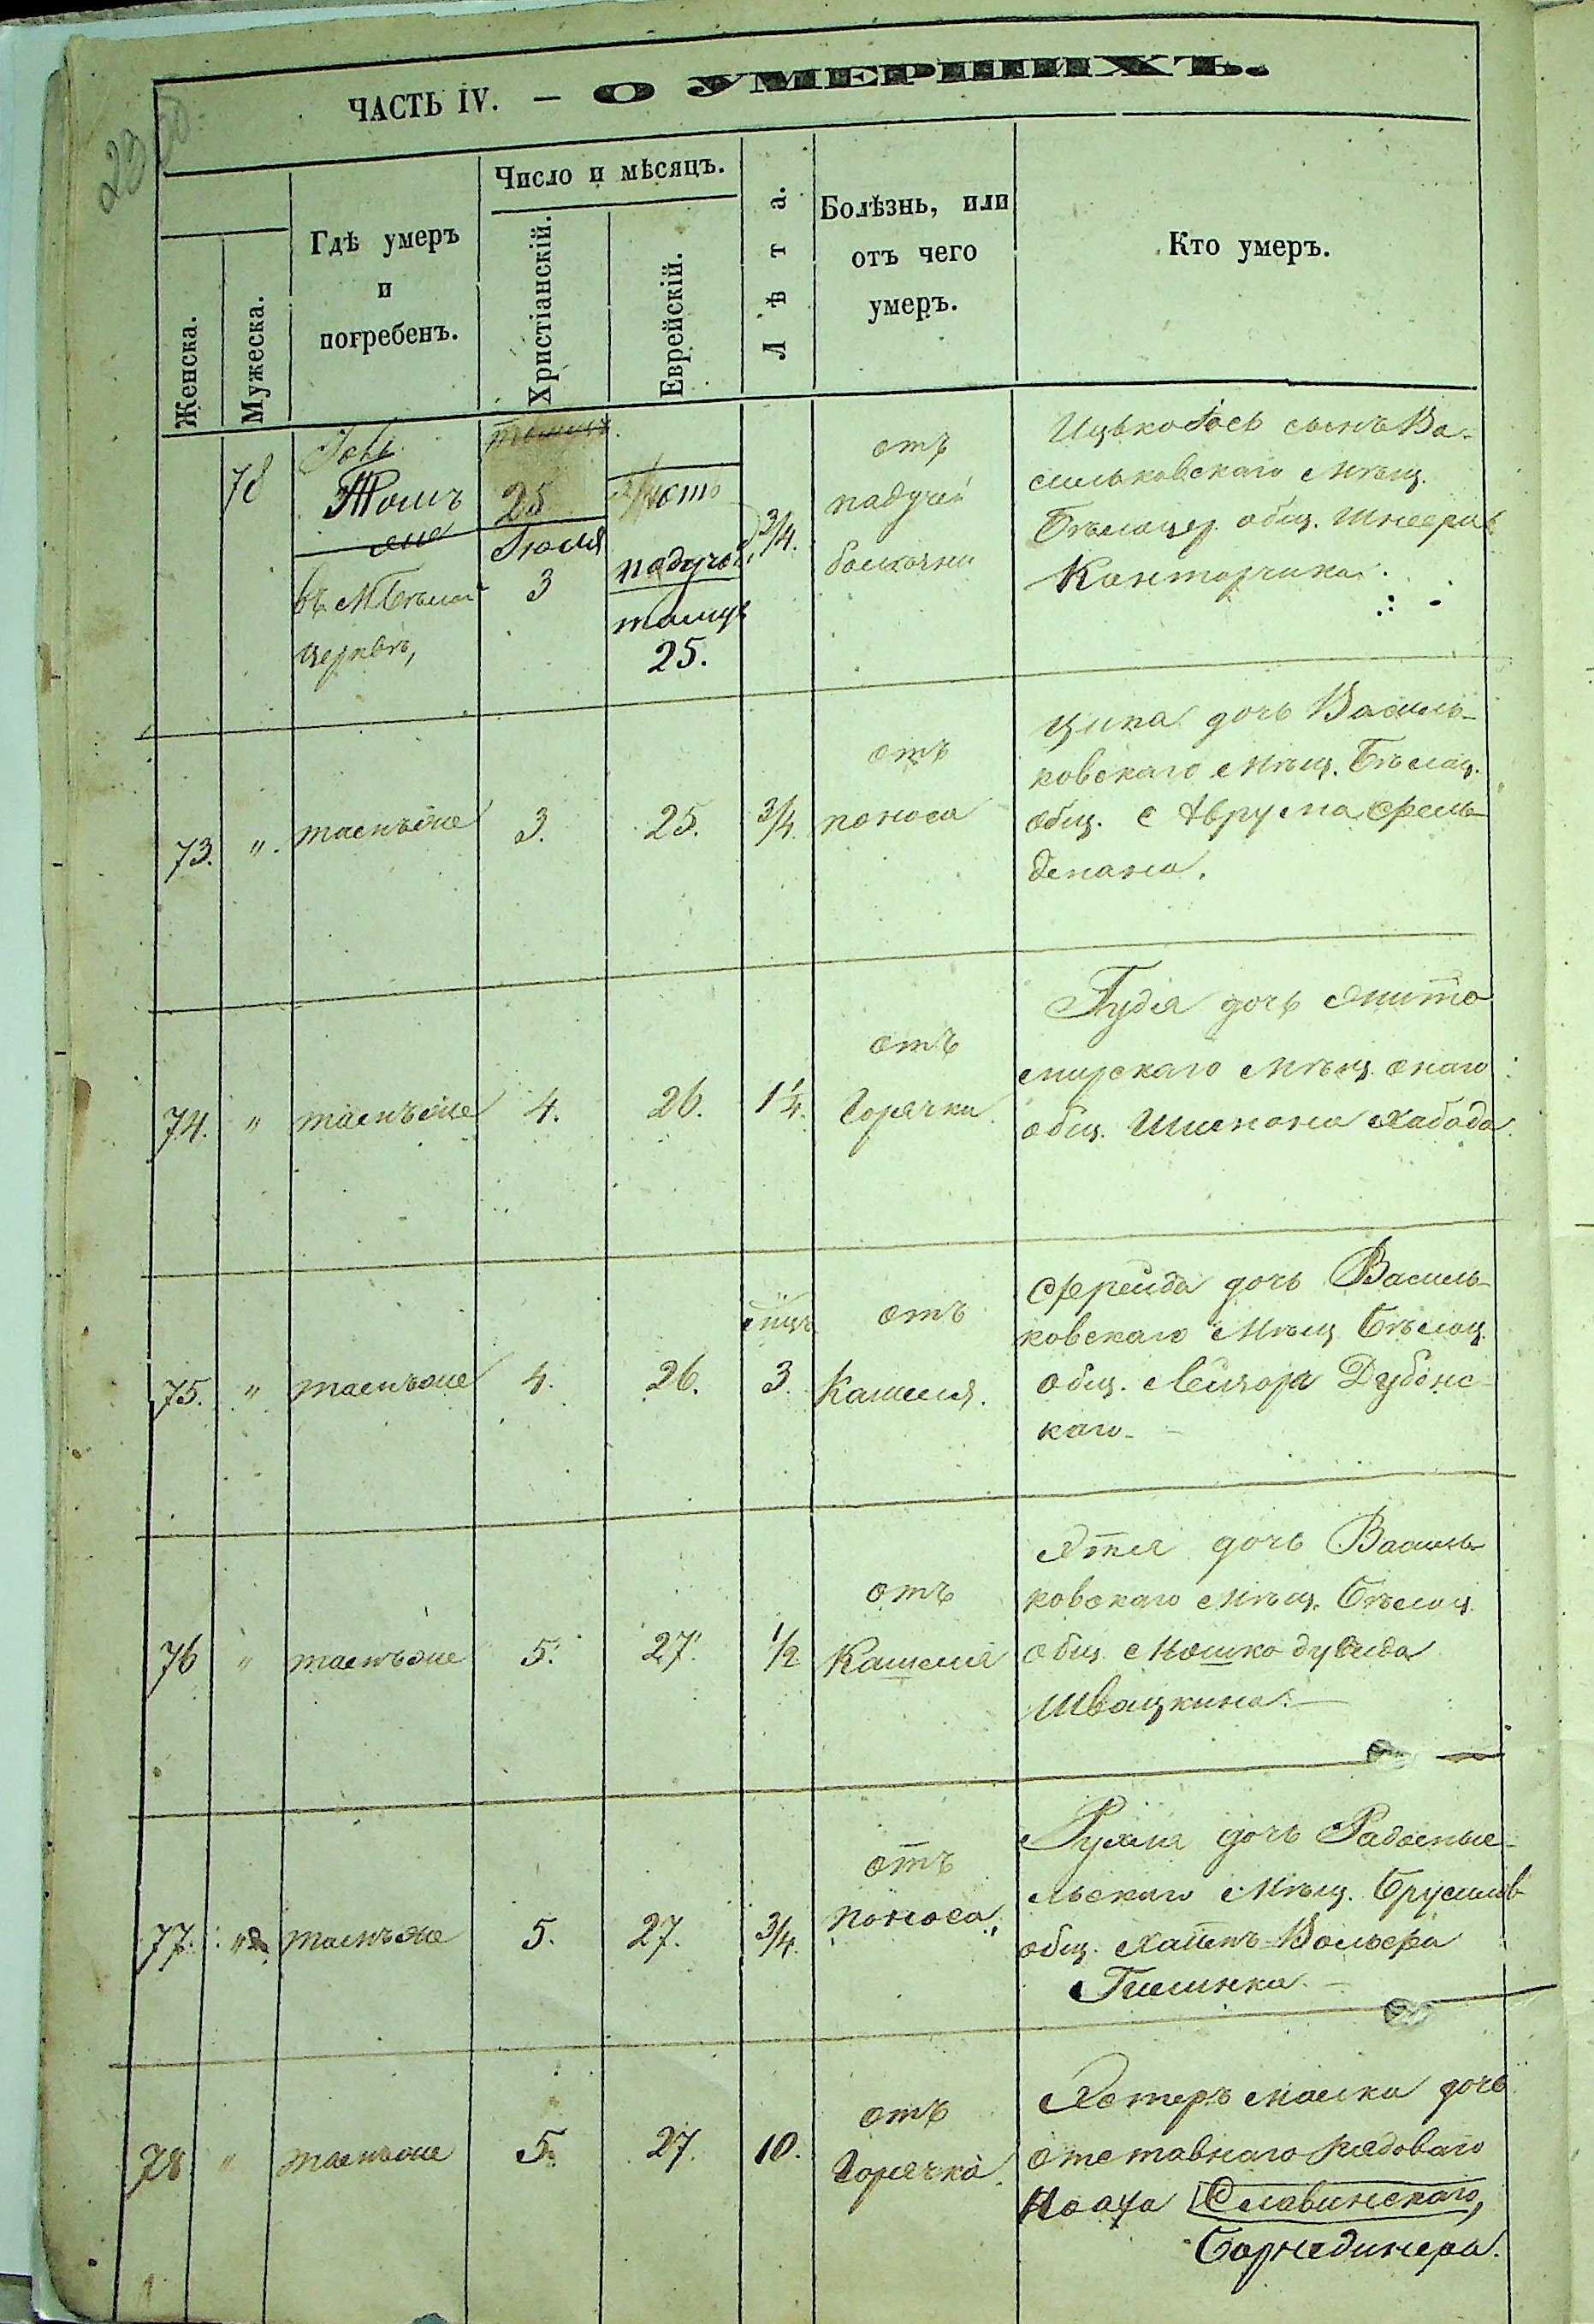 ЧАСТЬ IV. — О УМЕРШИХЪ.
Женска.
Мужеска.
Гдѣ умеръ
и
погребенъ.
Число и мѣсяцъ.
Христіанскій.
Еврейскій.
Лѣта.
Болѣзнь, или
отъ чего
умеръ.
Кто умеръ.
78
Томъ
въ М Бѣлой
церквѣ,
25
Іюля
3
падучей
тамузъ
25.
3/4.
отъ
падучей
болѣзни
Ицько Іось сынъ Ва-
сильковскаго мѣщ.
Бѣлоцер. общ. Шнеера
Канторчика.
73. ". тамъже 3. 25. 3/4
отъ
поноса
Ципа дочь Василь-
ковскаго мѣщ. Бѣлоц.
общ. Аврума Фель-
демана.
74. " тамъже 4. 26. 1 1/4.
отъ
Горячки
дочь Жито
мирскаго мѣщ. онаго
общ. Шимона Хабада
75. " тамъже 4. 26. 3.
отъ
Кашеля.
Фрейда дочь Василь-
ковскаго мѣщ. Бѣлоц.
общ. Лейзора Дубенс-
каго.
76 " тамъже 5. 27. 1/2
отъ
Кашеля
дочь Василь-
ковскаго мѣщ. Бѣлоц.
общ. Мошко дувида
Швацкина.—
77. " тамъже 5. 27. 3/4.
отъ
поноса.
Рухля дочь Радомыс-
льскаго мѣщ. Брусилов
общ. Хаимъ Вольфа
78 " тамъже 5. 27. 10.
отъ
Горячки.
Эстеръ Малка дочь
отставнаго рядоваго
Славинскаго,